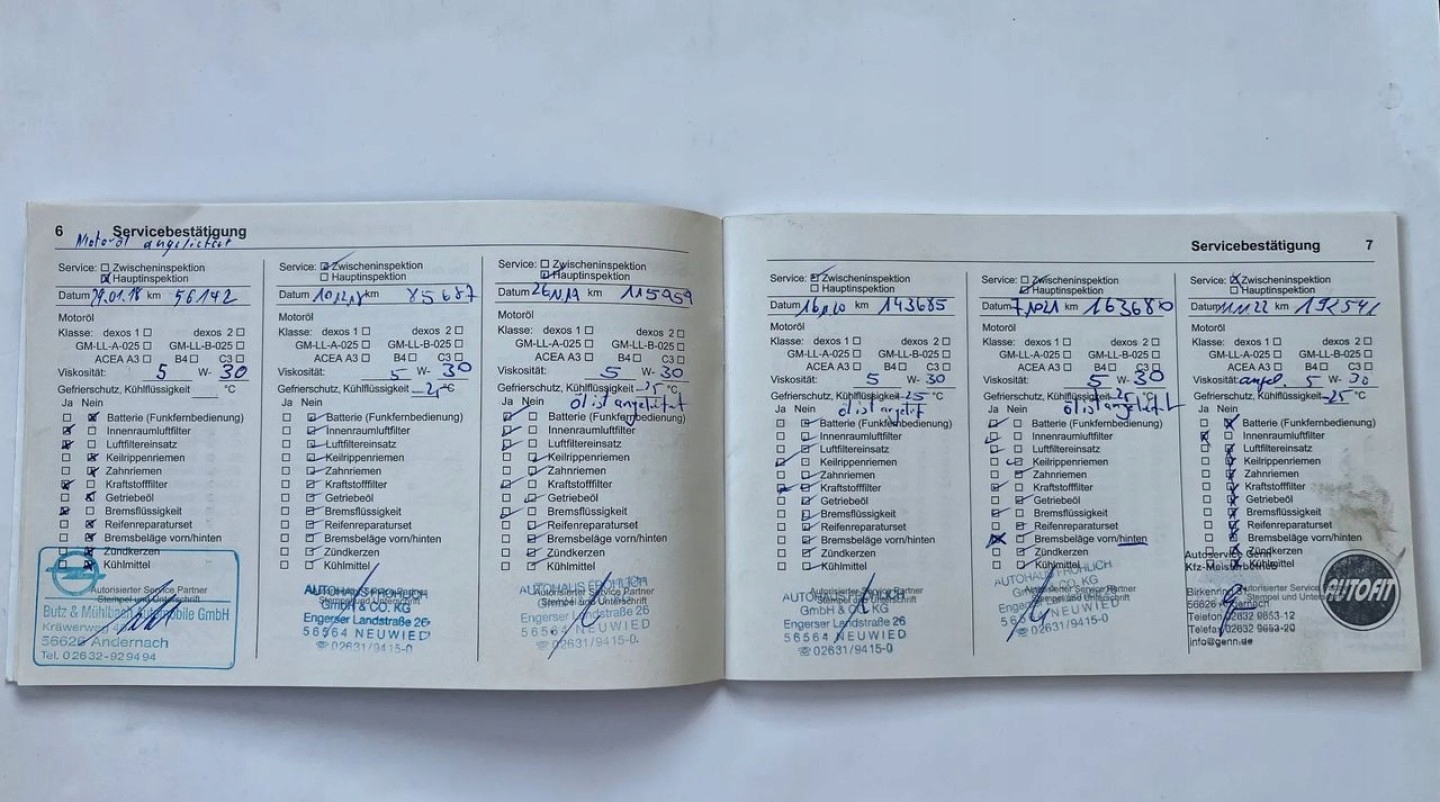 6 Servicebestätigung
Motoröl angeliefert
Service: Zwischeninspektion
Hauptinspektion
Datum 29.01.18 km 56142
Motoröl
Klasse: dexos 1 dexos 2
GM-LL-A-025 GM-LL-B-025
ACEA A3 B4 C3
Viskosität: 5 W- 30
Gefrierschutz, Kühlflüssigkeit °C
Ja Nein
Batterie (Funkfernbedienung)
Innenraumluftfilter
Luftfiltereinsatz
Keilrippenriemen
Zahnriemen
Kraftstofffilter
Getriebeöl
Bremsflüssigkeit
Reifenreparaturset
Bremsbeläge vorn/hinten
Zündkerzen
Kühlmittel
Autorisierter Service Partner
Stempel und Unterschrift
Butz & Mühlbach Automobile GmbH
Kräwerweg
56626 Andernach
Tel. 02632-929494
Service: Zwischeninspektion
Hauptinspektion
Datum 10.12.18 km 85687
Motoröl
Klasse: dexos 1 dexos 2
GM-LL-A-025 GM-LL-B-025
ACEA A3 B4 C3
Viskosität: 5 W- 30
Gefrierschutz, Kühlflüssigkeit -25 °C
Ja Nein
Batterie (Funkfernbedienung)
Innenraumluftfilter
Luftfiltereinsatz
Keilrippenriemen
Zahnriemen
Kraftstofffilter
Getriebeöl
Bremsflüssigkeit
Reifenreparaturset
Bremsbeläge vorn/hinten
Zündkerzen
Kühlmittel
Autorisierter Service Partner
Stempel und Unterschrift
AUTOHAUS FRÖHLICH
GmbH & CO. KG
Engerser Landstraße 26
56564 NEUWIED
☏ 02631/9415-0
Service: Zwischeninspektion
Hauptinspektion
Datum 26.11.19 km 115959
Motoröl
Klasse: dexos 1 dexos 2
GM-LL-A-025 GM-LL-B-025
ACEA A3 B4 C3
Viskosität: 5 W- 30
Gefrierschutz, Kühlflüssigkeit -25 °C
Ja Nein öl ist angeliefert
Batterie (Funkfernbedienung)
Innenraumluftfilter
Luftfiltereinsatz
Keilrippenriemen
Zahnriemen
Kraftstofffilter
Getriebeöl
Bremsflüssigkeit
Reifenreparaturset
Bremsbeläge vorn/hinten
Zündkerzen
Kühlmittel
Autorisierter Service Partner
Stempel und Unterschrift
AUTOHAUS FRÖHLICH
Engerser Landstraße 26
56564 NEUWIED
☏ 02631/9415-0
Servicebestätigung 7
Service: Zwischeninspektion
Hauptinspektion
Datum km 143685
Motoröl
Klasse: dexos 1 dexos 2
GM-LL-A-025 GM-LL-B-025
ACEA A3 B4 C3
Viskosität: 5 W- 30
Gefrierschutz, Kühlflüssigkeit -25 °C
Ja Nein öl ist
Batterie (Funkfernbedienung)
Innenraumluftfilter
Luftfiltereinsatz
Keilrippenriemen
Zahnriemen
Kraftstofffilter
Getriebeöl
Bremsflüssigkeit
Reifenreparaturset
Bremsbeläge vorn/hinten
Zündkerzen
Kühlmittel
Autorisierter Service Partner
Stempel und Unterschrift
AUTOHAUS FRÖHLICH
GmbH & CO. KG
Engerser Landstraße 26
56564 NEUWIED
☏ 02631/9415-0
Service: Zwischeninspektion
Hauptinspektion
Datum km 163680
Motoröl
Klasse: dexos 1 dexos 2
GM-LL-A-025 GM-LL-B-025
ACEA A3 B4 C3
Viskosität: 5 W- 30
Gefrierschutz, Kühlflüssigkeit -25 °C
Ja Nein öl ist angeliefert
Batterie (Funkfernbedienung)
Innenraumluftfilter
Luftfiltereinsatz
Keilrippenriemen
Zahnriemen
Kraftstofffilter
Getriebeöl
Bremsflüssigkeit
Reifenreparaturset
Bremsbeläge vorn/hinten
Zündkerzen
Kühlmittel
Autorisierter Service Partner
Stempel und Unterschrift
AUTOHAUS FRÖHLICH
GmbH & CO. KG
Engerser Landstraße 26
56564 NEUWIED
☏ 02631/9415-0
Service: Zwischeninspektion
Hauptinspektion
Datum 11.11.22 km 192541
Motoröl
Klasse: dexos 1 dexos 2
GM-LL-A-025 GM-LL-B-025
ACEA A3 B4 C3
Viskosität: angel. 5 W- 30
Gefrierschutz, Kühlflüssigkeit -25 °C
Ja Nein
Batterie (Funkfernbedienung)
Innenraumluftfilter
Luftfiltereinsatz
Keilrippenriemen
Zahnriemen
Kraftstofffilter
Getriebeöl
Bremsflüssigkeit
Reifenreparaturset
Bremsbeläge vorn/hinten
Zündkerzen
Kühlmittel
Autorisierter Service Partner
Stempel und Unterschrift
Autoservice Genn
Kfz-Meisterbetrieb
Birkenring
56626 Andernach
Telefon 02632 9653-12
Telefax 02632 9653-20
info@genn.de
AUTOFIT